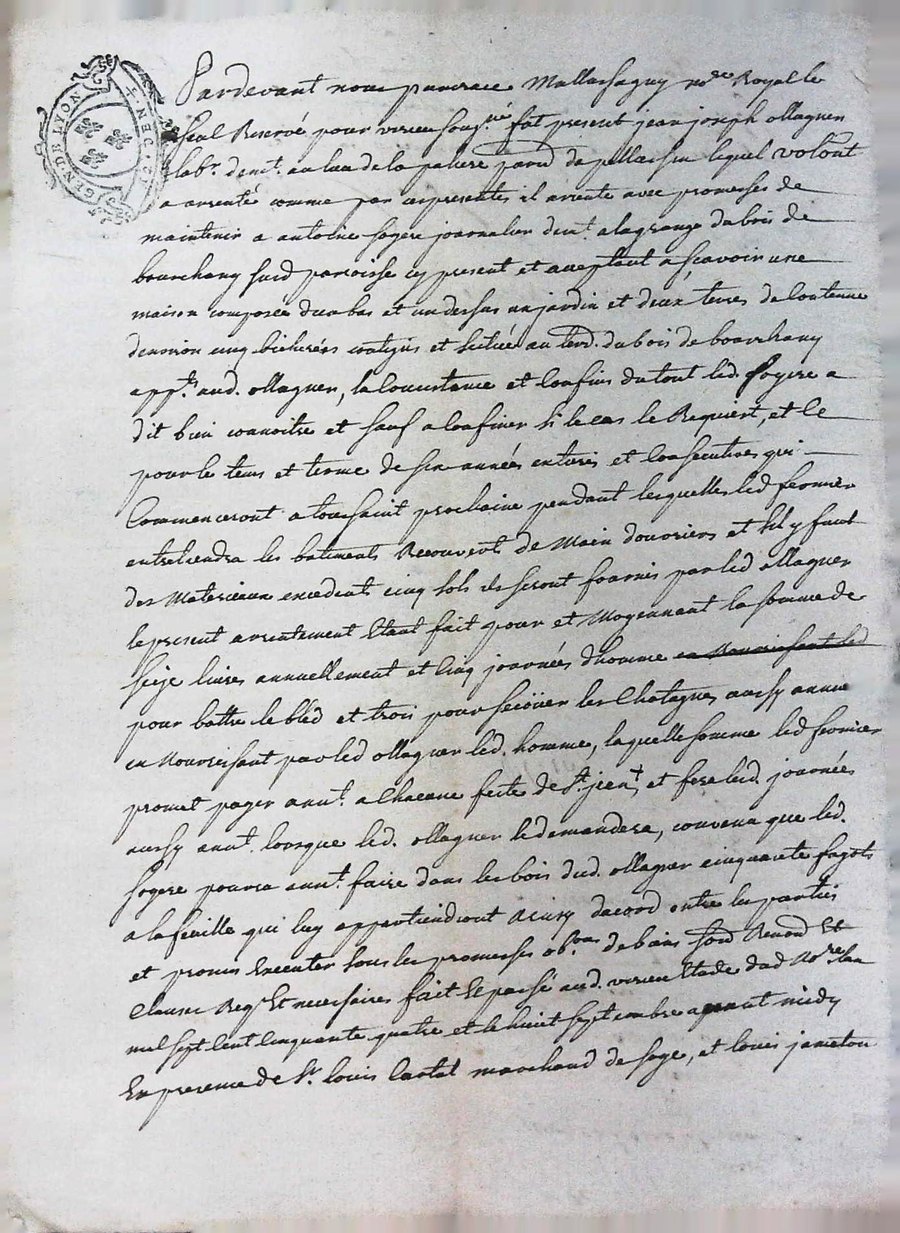 GEN. DE LYON
DEN. CI
Pardevant nous pancrace Mallassagny no.re Royal le
seal Reservé pour virieu soug.né fut present jean joseph ollagner
lab.r dem.t au lieu de la paliere parod de pellassin lequel volont
a arrenté comme par ces presentes il arrente avec promesses de
maintenir a antoine sogere journalier dem.t a la grange du bois de
bourchany susd paroisse cy present et acceptant a sçavoir une
maison composée d'un bas et un dessus un jardin et deux terres de contenue
d'environ cinq bicherées contigus et située au terd. du bois de bourchany
app.t aud. ollagner, la consistance et confins du tout led. sogere a
dit bien conoitre et sauf a confiner si le cas le Requiert, et ce
pour le tems et terme de six années entieres et consecutives qui
Commenceront a toussaint prochaine pendant lesquelles led fermier
entretiendra les batiments Recouverts de Main d'ouvriers et s'il y faut
des Materiaux excedents cinq sols ils seront fournis par led ollagner
le present arrentement Etant fait pour et Moyennant la somme de
seize livres annuellement et Cinq journées d'homme en Nourrissant led
pour battre le bled et trois pour secoüer les Chatagnes aussy annue
en Nourrissant par led ollagner led. homme, laquelle somme led fermier
promet payer annt. a Chacune feste de St. jean, et fera led. journées
aussy annt. lorsque led. ollagner le demandera, convenu que led.
sogere pourra annt. faire dans les bois dud. ollagner cinquante fagots
a la feuille qui luy appartiendront Ainsy d'acord entre les parties
et promis Executer sous les promesses ob.ons de biens soud Renond Et
Clauses Reqs. Et necessaires fait Et passé aud. virieu Etude dud No.re lan
mil sept cent cinquante quatre et le huit septembre avant midy
En presence de Sr. louis Cartal marchand de soye, et louis janeton